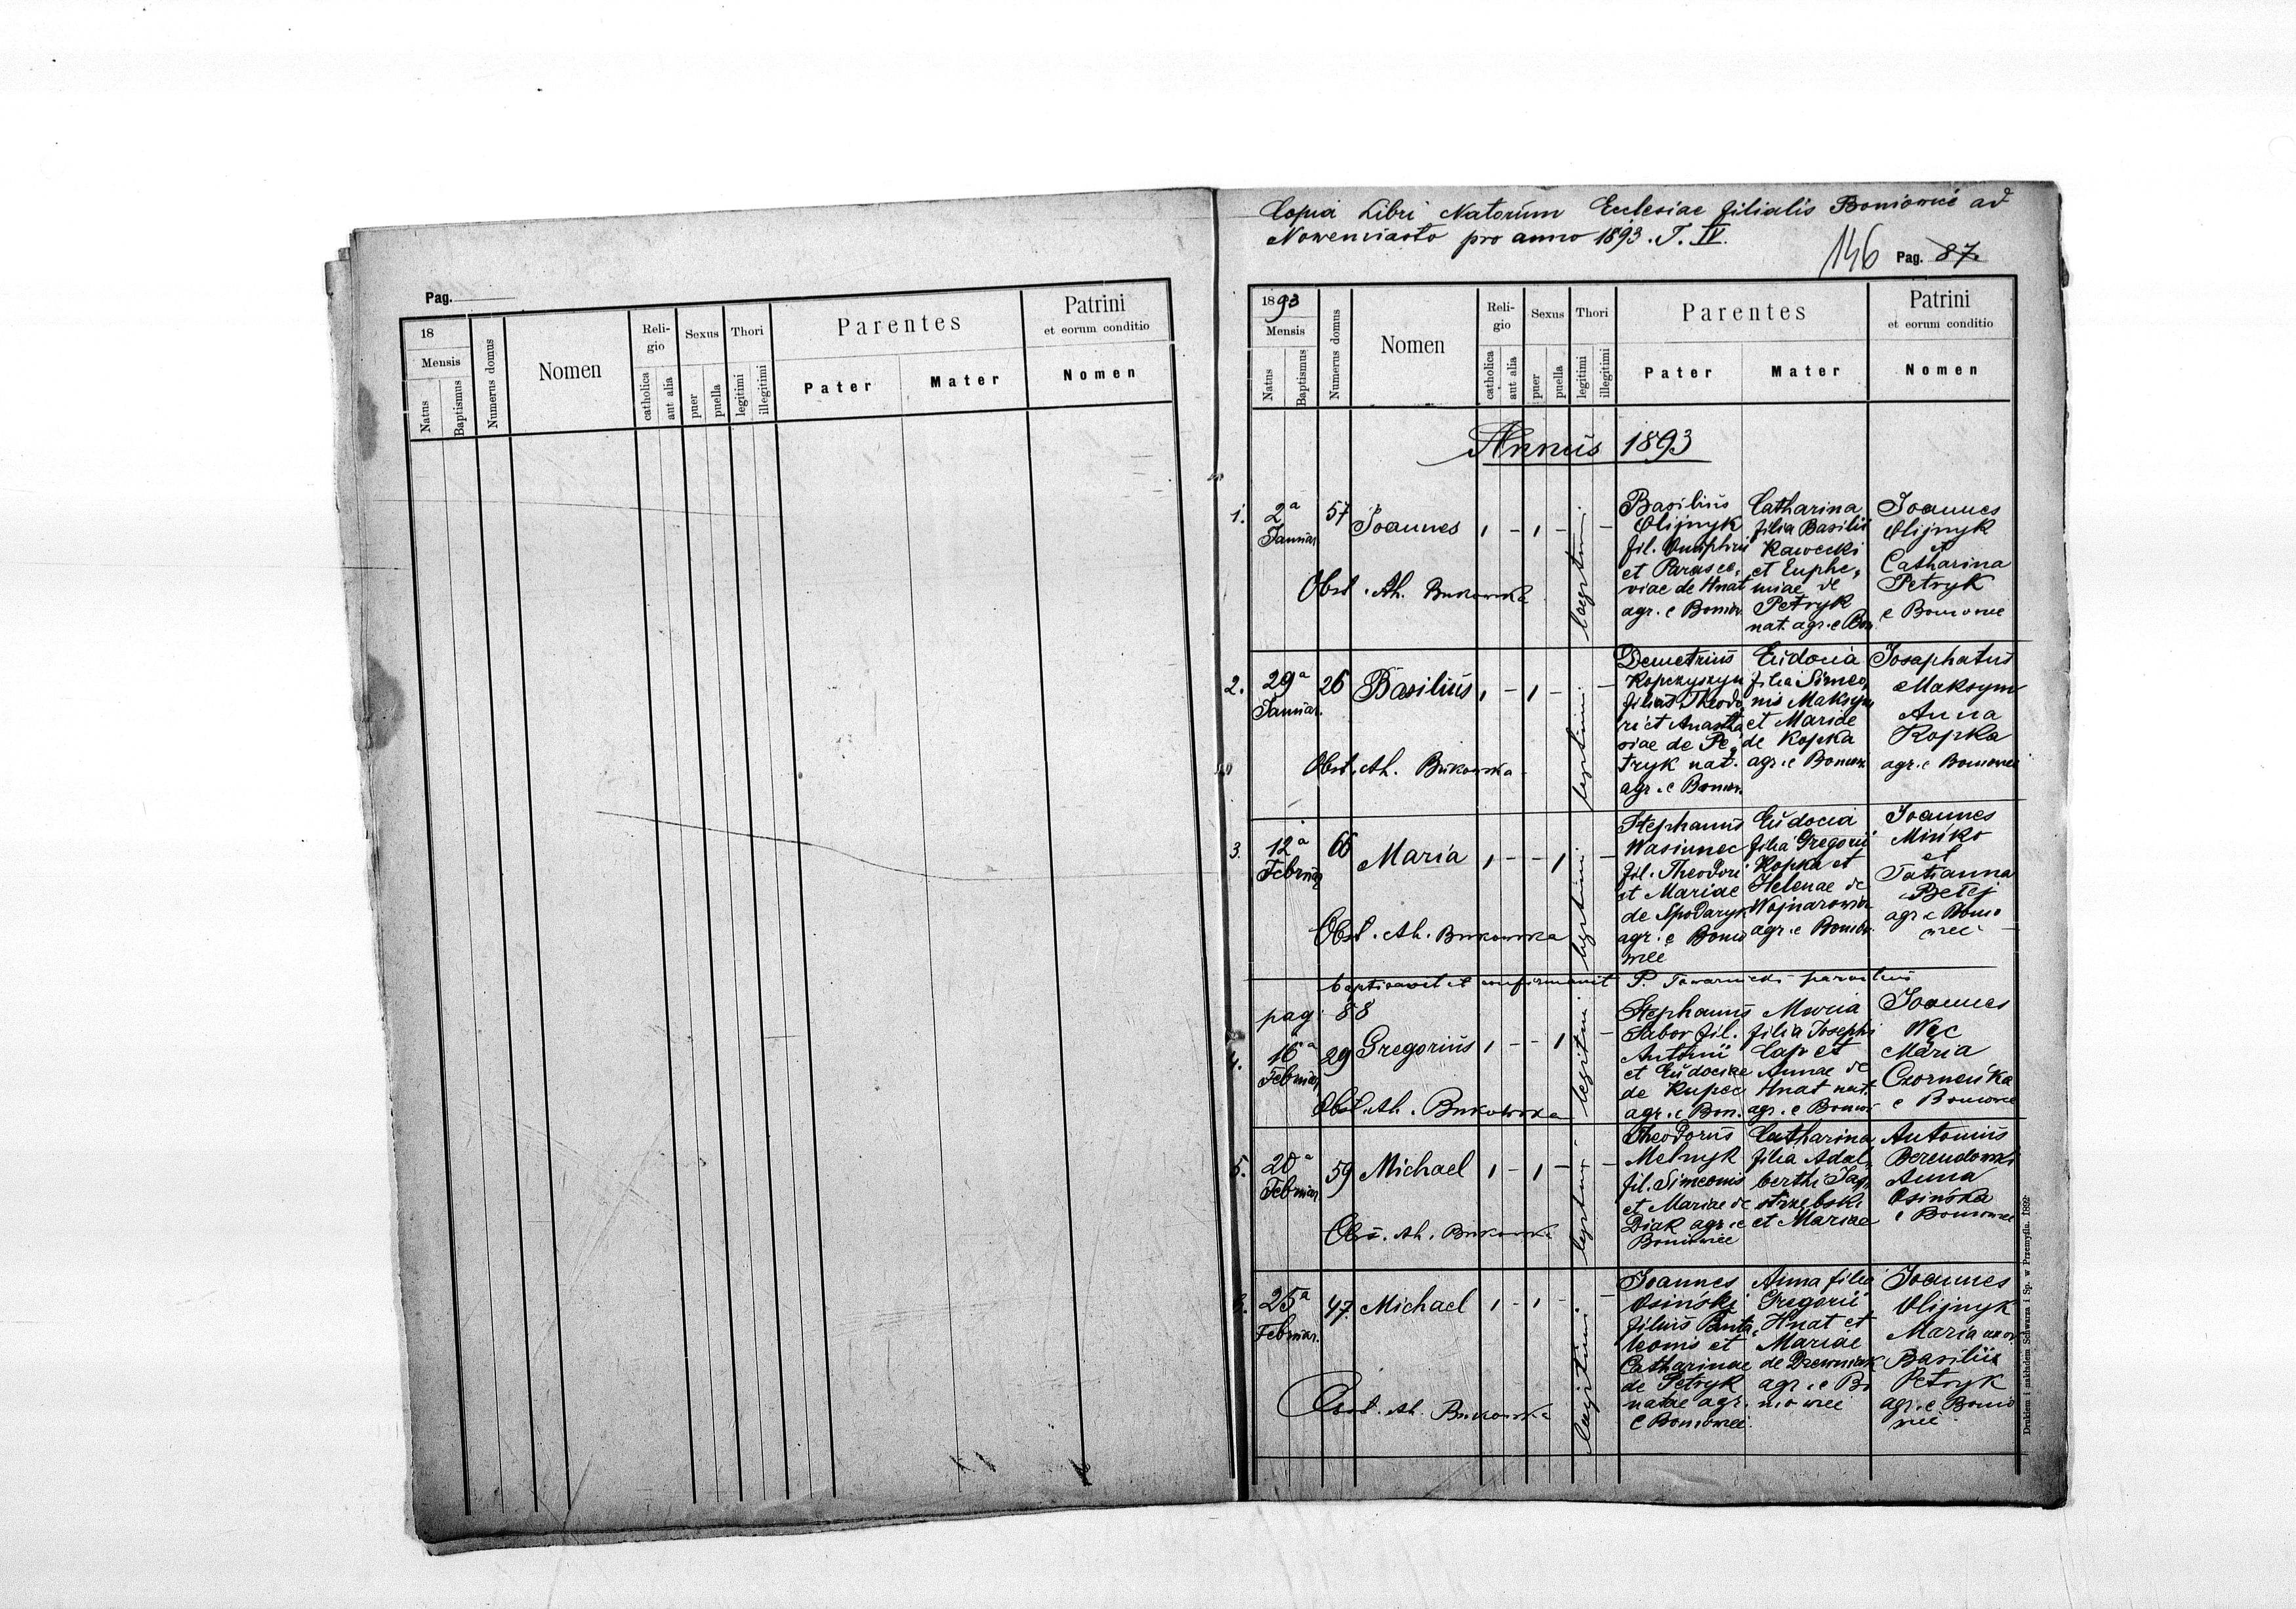 Pag.
18
Mensis
Natus
Baptismus
Numerus domus
Nomen
Reli-
gio
catholica
aut alia
Sexus
puer
puella
Thori
legitimi
illegitimi
Parentes
Pater
Mater
Patrini
et eorum conditio
Nomen
Copia Libri Natorum Ecclesiae filialis Boniowice ad
Nowemiasto pro anno 1893. T. IV.
146 Pag. 87.
1893
Mensis
Natus
Baptismus
Numerus domus
Nomen
Reli-
gio
catholica
aut alia
Sexus
puer
puella
Thori
legitimi
illegitimi
Parentes
Pater
Mater
Patrini
et eorum conditio
Nomen
Annus 1893
1. 2a
Januar
57
Joannes
1 - 1 - legitimi -
Obst. Ah. Bukowska
Basilius
Olijnyk
fil. Onuphrii
et Parasce,
viae de Hnat
agr. e Boniow
Catharina
filia Basilii
Kawecki
et Euphe,
miae de
Petryk
nat. agr. e Bon
Joannes
Olijnyk
et
Catharina
Petryk
e Boniowice
2. 29a
Januar.
26
Basilius
1 - 1 - legitimi -
Obst. Ah. Bukowska
Demetrius
Kopczyszyn
filius Theodo,
ri et Anasta
siae de Pe,
tryk nat.
agr. e Boniow.
Eudocia
filia Simeo,
nis Maksym
et Mariae
de Kopka
agr. e Boniow
Josaphatus
Maksym
Anna
Kopka
agr. e Boniowice
3. 12a
Februar
66
Maria
1 - - 1 legitimi -
Obst. Ah. Bukowska
Stephanus
Wasiunec
fil. Theodori
et Mariae
de Spodaryk
agr. e Bonio
wice
Eudocia
filia Gregorii
Kopka et
Helenae de
Wojnarowicz
agr. e Boniow
Joannes
Mińko
et
Tatianna
Betej
agr. e Bonio
wice
baptisavit et confirmavit P. Towarnicki parochus
pag. 88
4. 16a
Februar
29
Gregorius
1 - - 1 legitimi -
Obst. Ah. Bukowska
Stephanus
Sabor fil.
Antonii
et Eudociae
de Kupec
agr. e Bon.
Maria
filia Josephi
Cap et
Annae de
Hnat nat.
agr. e Boniow
Joannes
Węc
Maria
Czorneńka
e Boniowice
5. 20a
Februar
59
Michael
1 - 1 - legitimi -
Obst. Ah. Bukowska
Theodorus
Melnyk
fil. Simeonis
et Mariae de
Diak agr. e
Boniowice
Catharina
filia Adal,
berthi Ja,
strzebski
et Mariae
Antonius
Berendowski
Anna
Osińska
e Boniowice
6. 25a
Februar.
47.
Michael
1 - 1 - legitimi -
Obst. Ah. Bukowska
Joannes
Osiński
filius Panta,
leonis et
Catharinae
de Petryk
natae agr.
e Boniowice
Anna filia
Gregorii
Hnat et
Mariae
de Drewniak
agr. e Bo
niowice
Joannes
Olijnyk
Maria uxor
Basilii
Petryk
agr. e Bonio
wice
Drukiem i nakładem Schwarza i Sp. w Przemyślu. 1892